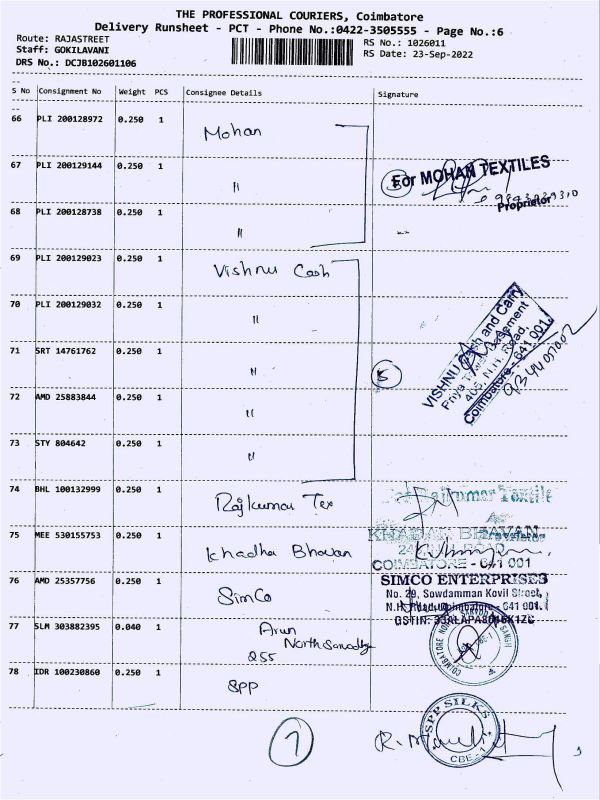 THE PROFESSIONAL COURIERS, Coimbatore
Delivery Runsheet - PCT - Phone No.:0422-3505555 - Page No.:6
Route: RAJASTREET
RS No.: 1026011
Staff: GOKILAVANI
RS Date: 23-Sep-2022
DRS No.: DCJB102601106
S No Consignment No Weight PCS Consignee Details Signature
66 PLI 200128972 0.250 1 Mohan
67 PLI 200129144 0.250 1 "
For MOHAN TEXTILES
Proprietor
68 PLI 200128738 0.250 1 "
69 PLI 200129023 0.250 1 Vishnu Cash
70 PLI 200129032 0.250 1 "
71 SRT 14761762 0.250 1 "
VISHNU Cash and Carry
Basement
405, N.H. Road,
Coimbatore - 641 001.
5
72 AMD 25883844 0.250 1 "
73 STY 804642 0.250 1 "
74 BHL 100132999 0.250 1 Rajkumar Tex
Rajkumar Textile
75 MEE 530155753 0.250 1 Khadha Bhavan
KHADHI BHAVAN
COIMBATORE - 641 001
76 AMD 25357756 0.250 1 SimCo
SIMCO ENTERPRISES
No. 29, Sowdamman Kovil Street,
N.H. Road, Coimbatore - 641 001.
77 SLM 303882395 0.040 1 Arun
255
COIMBATORE NORTH SARVODAYA SANGH
78 IDR 100230860 0.250 1 SPP
SPP SILKS
CBE - 1
7